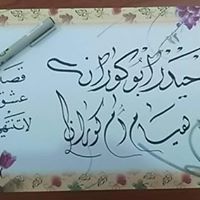 حيدر ابو كوران
هيام ام كوران
قصة
عشق
لا تنتهي